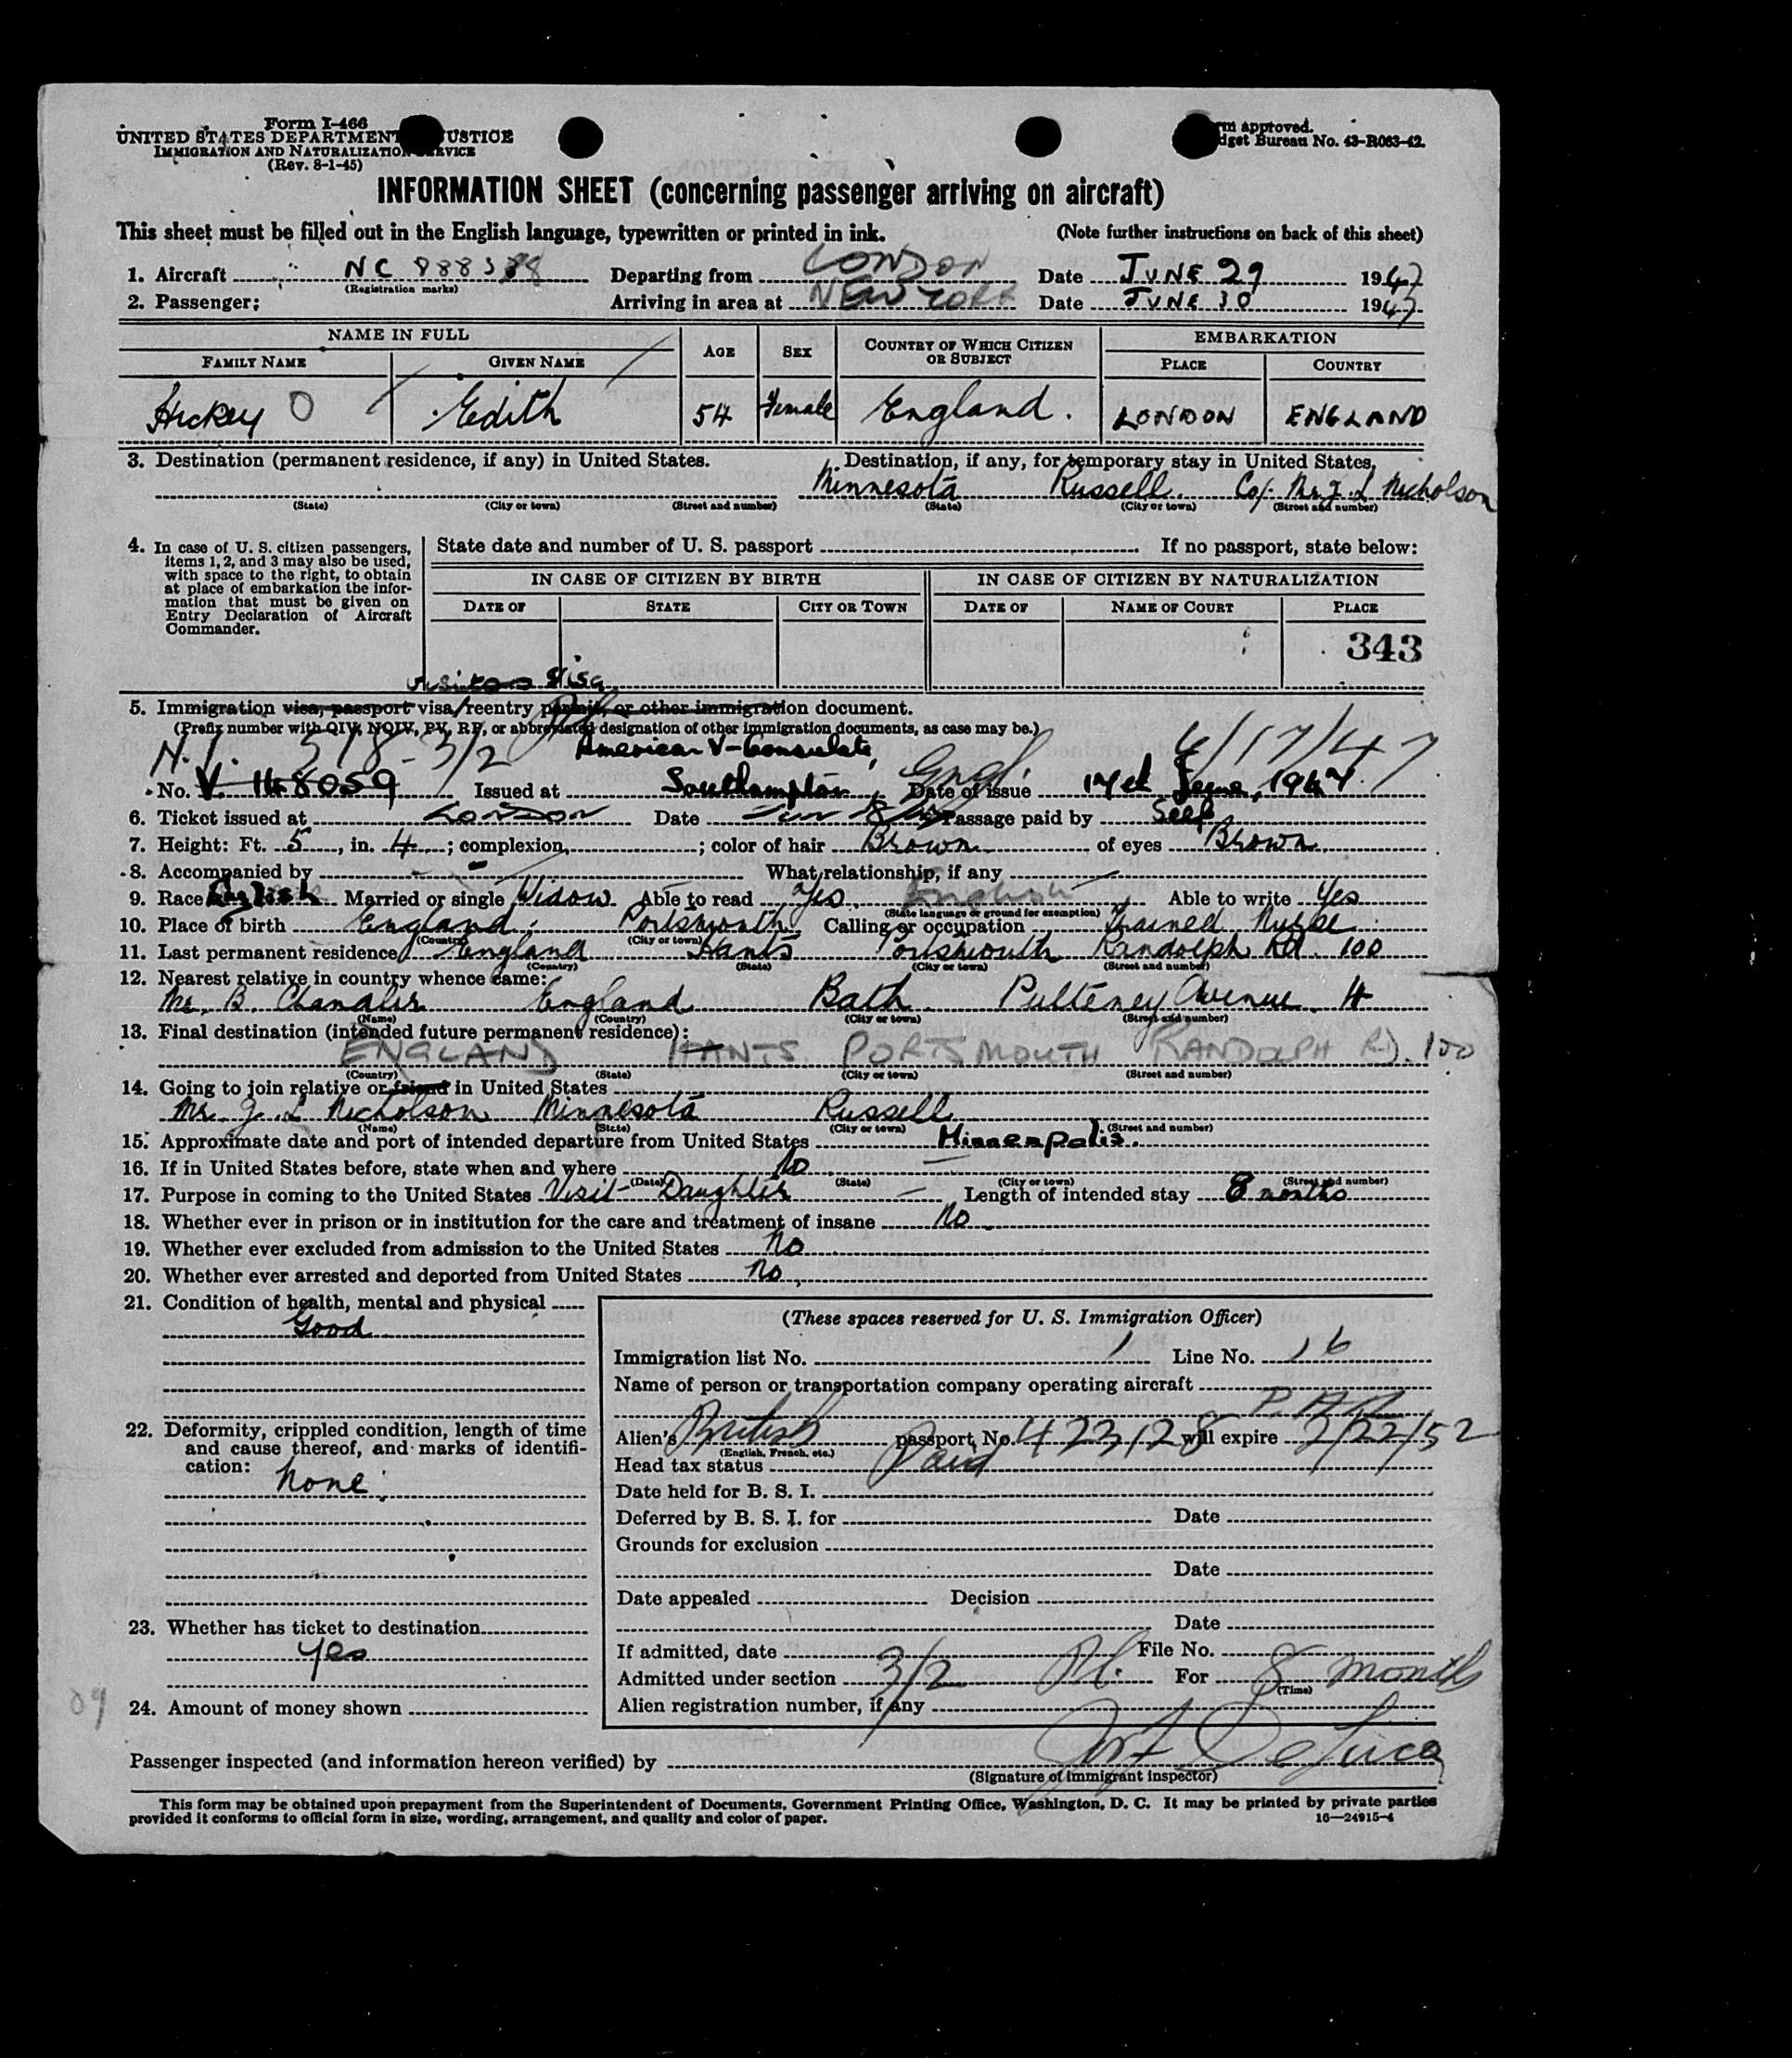 Form I-466
UNITED STATES DEPARTMENT JUSTICE
IMMIGRATION AND NATURALIZATION SERVICE
(Rev. 8-1-45)
rm approved.
dget Bureau No. 43-R063-42.
INFORMATION SHEET (concerning passenger arriving on aircraft)
This sheet must be filled out in the English language, typewritten or printed in ink. (Note further instructions on back of this sheet)
1. Aircraft NC Departing from LONDON Date JUNE 29 1947
(Registration marks)
2. Passenger: Arriving in area at NEW YORK Date JUNE 30 1947
NAME IN FULL AGE SEX COUNTRY OF WHICH CITIZEN OR SUBJECT EMBARKATION
FAMILY NAME GIVEN NAME PLACE COUNTRY
Hickey O Edith 54 Female England. LONDON ENGLAND
3. Destination (permanent residence, if any) in United States. Destination, if any, for temporary stay in United States.
Minnesota Russell. C/o Mr. J. L Nicholson
(State) (City or town) (Street and number) (State) (City or town) (Street and number)
4. In case of U. S. citizen passengers, items 1, 2, and 3 may also be used, with space to the right, to obtain at place of embarkation the information that must be given on Entry Declaration of Aircraft Commander.
State date and number of U. S. passport If no passport, state below:
IN CASE OF CITIZEN BY BIRTH IN CASE OF CITIZEN BY NATURALIZATION
DATE OF STATE CITY OR TOWN DATE OF NAME OF COURT PLACE
343
Visitors Visa
5. Immigration visa, passport visa, reentry permit, or other immigration document.
(Prefix number with QIV, NQIV, PV, RP, or abbreviated designation of other immigration documents, as case may be.)
N.I. 318-3/2 American V-Consulate, Engl. 6/17/47
No. V. 148059 Issued at Southampton, Date of issue 17th June, 1947.
6. Ticket issued at LONDON Date Passage paid by Self
7. Height: Ft. 5, in. 4; complexion ; color of hair Brown of eyes Brown
8. Accompanied by What relationship, if any
9. Race English Married or single Widow Able to read Yes English Able to write Yes
(State language or ground for exemption)
10. Place of birth England, Portsmouth Calling or occupation Trained Nurse
(Country) (City or town)
11. Last permanent residence England Hants Portsmouth Randolph Rd. 100
(Country) (State) (City or town) (Street and number)
12. Nearest relative in country whence came:
Mr. B. Chandler England Bath Pulteney Avenue 4
(Name) (Country) (City or town) (Street and number)
13. Final destination (intended future permanent residence):
ENGLAND HANTS. PORTSMOUTH RANDOLPH RD. 100
(Country) (State) (City or town) (Street and number)
14. Going to join relative or friend in United States
Mr. J. L Nicholson Minnesota Russell
(Name) (State) (City or town) (Street and number)
15. Approximate date and port of intended departure from United States Minneapolis.
16. If in United States before, state when and where No
(Date) (State) (City or town) (Street and number)
17. Purpose in coming to the United States Visit Daughter Length of intended stay 8 months
18. Whether ever in prison or in institution for the care and treatment of insane No
19. Whether ever excluded from admission to the United States No
20. Whether ever arrested and deported from United States No
21. Condition of health, mental and physical
Good
22. Deformity, crippled condition, length of time and cause thereof, and marks of identification:
None.
23. Whether has ticket to destination
yes
24. Amount of money shown
09
(These spaces reserved for U. S. Immigration Officer)
Immigration list No. 1 Line No. 16
Name of person or transportation company operating aircraft
P.A.A.
Alien's British passport No. 423128 will expire 2/22/52
(English, French, etc.)
Head tax status Paid
Date held for B. S. I.
Deferred by B. S. I. for Date
Grounds for exclusion
Date
Date appealed Decision
Date
If admitted, date File No.
Admitted under section 3/2 For 8 months
(Time)
Alien registration number, if any
Passenger inspected (and information hereon verified) by
(Signature of immigrant inspector)
This form may be obtained upon prepayment from the Superintendent of Documents, Government Printing Office, Washington, D. C. It may be printed by private parties
provided it conforms to official form in size, wording, arrangement, and quality and color of paper. 16—24915-4